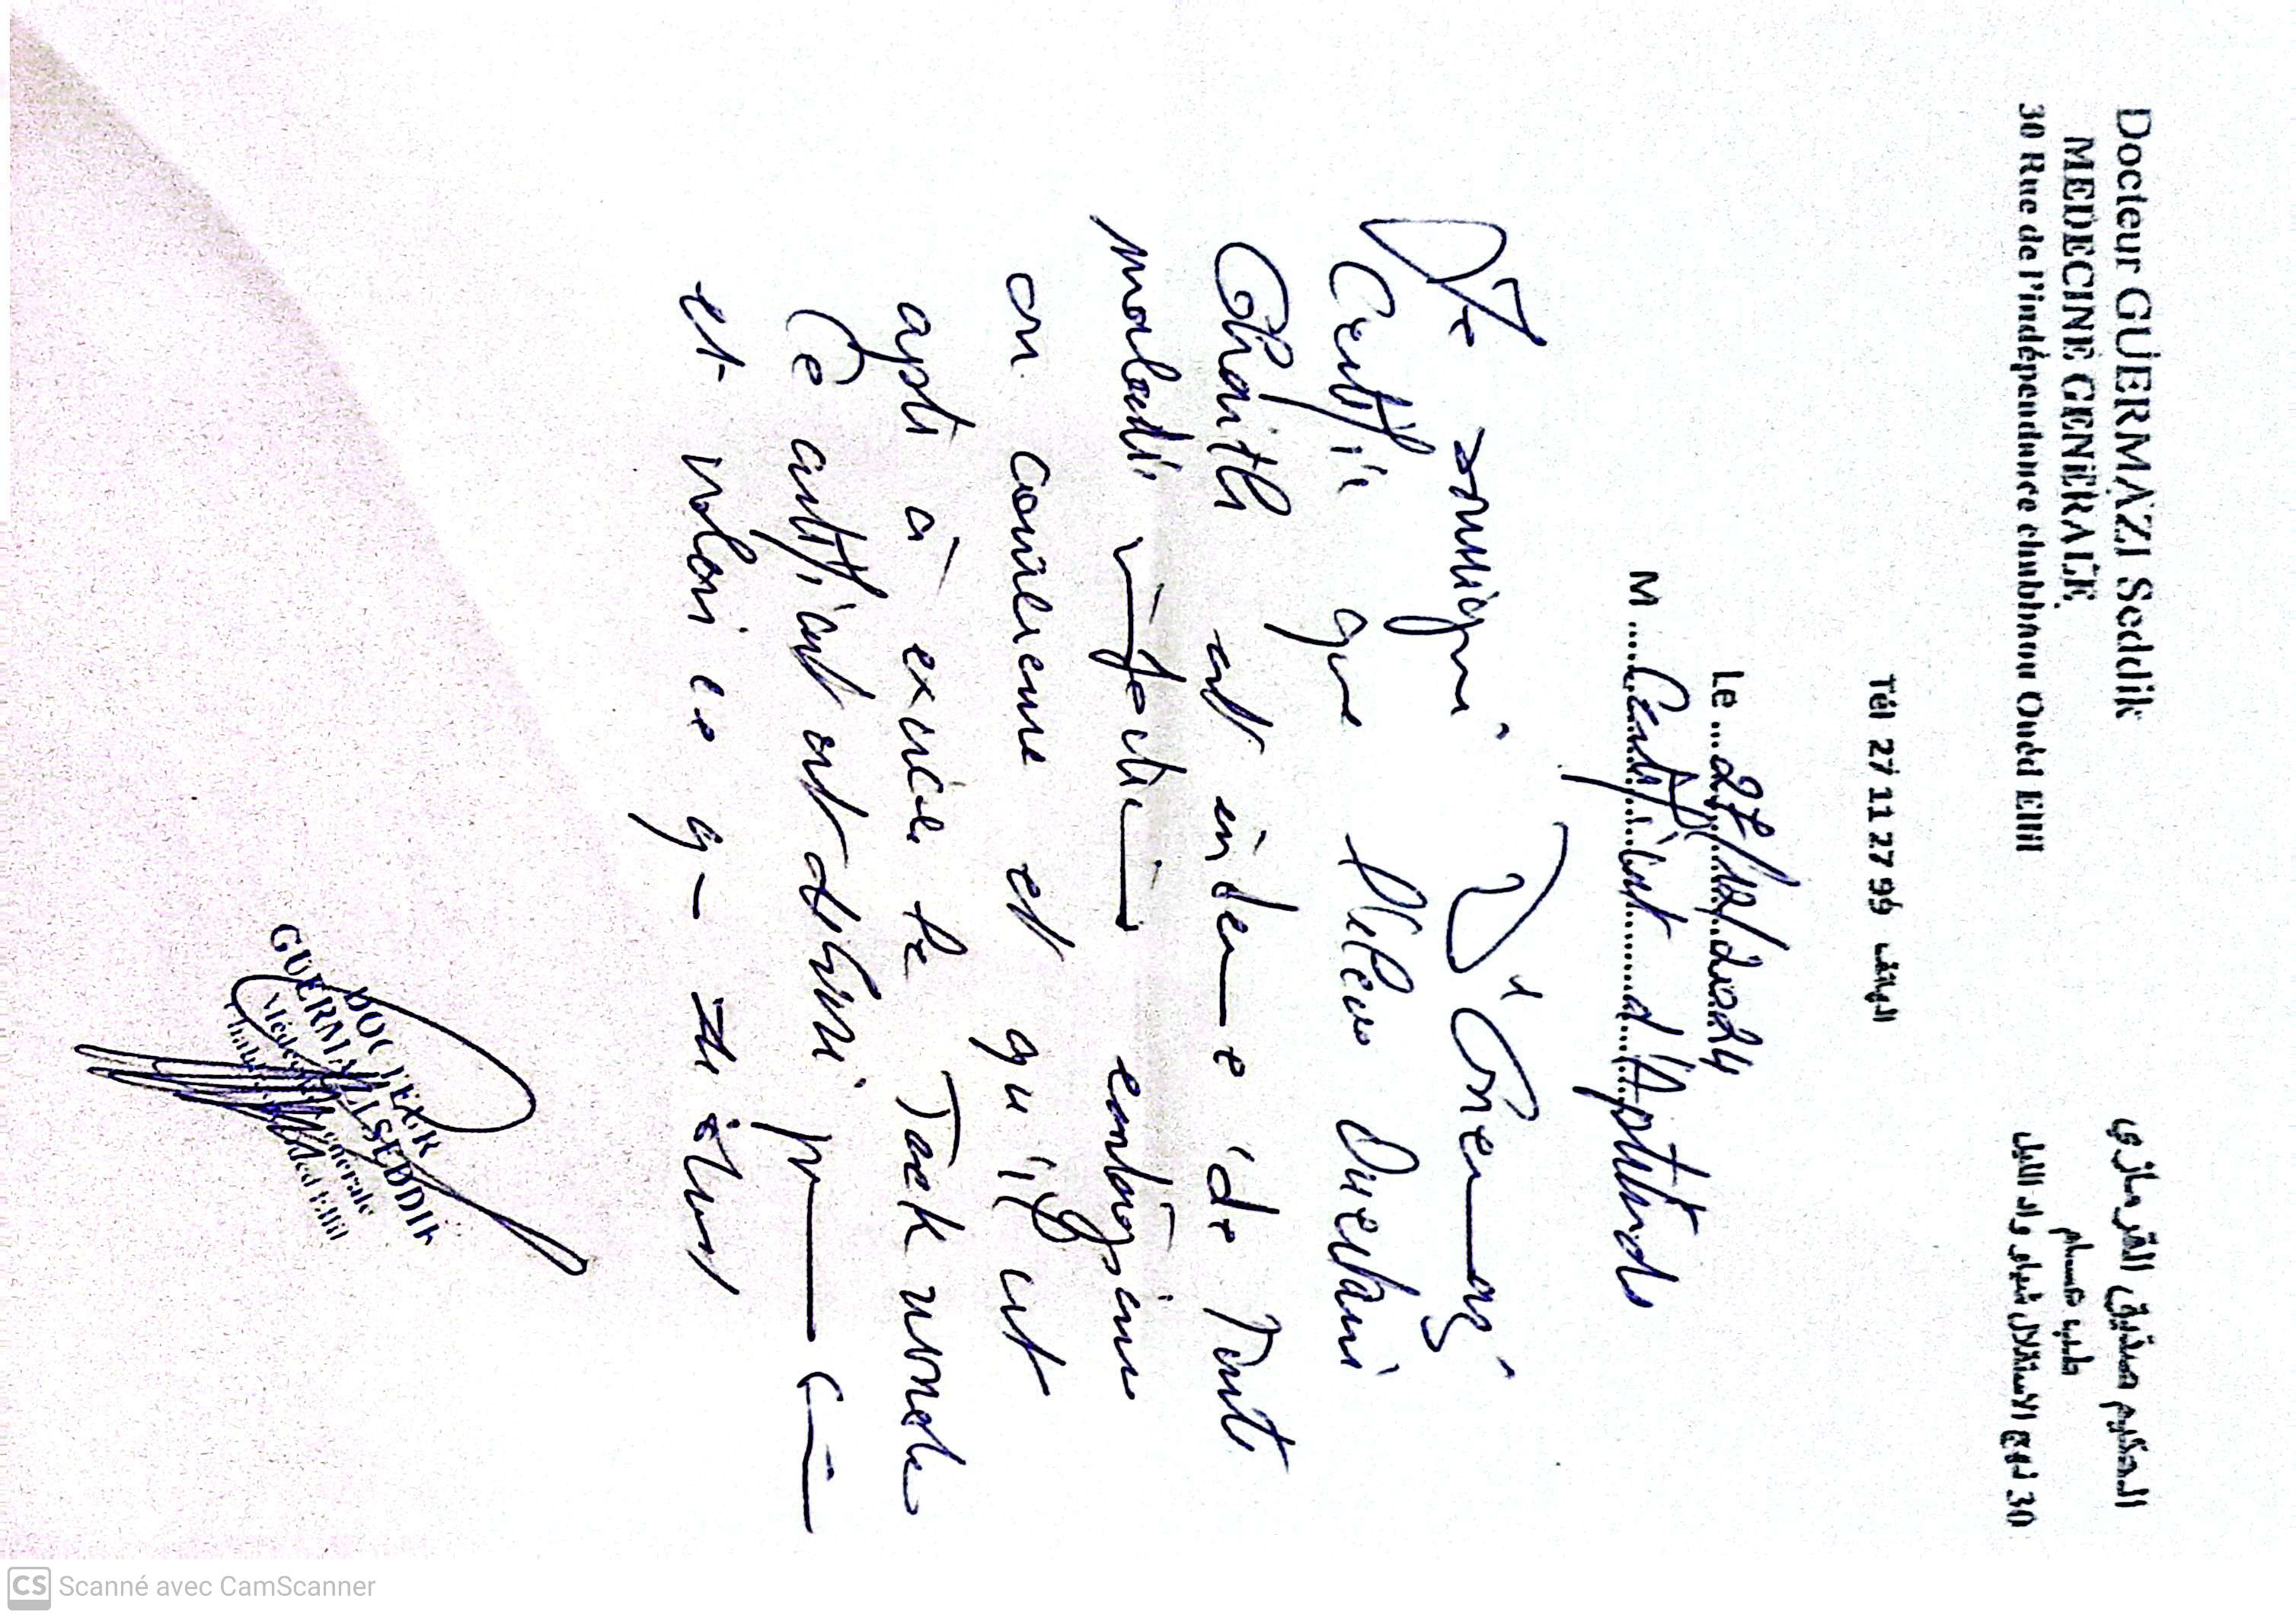 Docteur GUERMAZI Seddik
MEDECINE GENERALE
30 Rue de l'indépendance chabhaou Oudd Ellil
الحكيم صديق القرمازي
طب عام
30 نهج الاستقلال شباو واد الليل
Tél 27 11 27 99 الهاتف
Le 27/12/2024
M Certificat d'Aptitude
Je soussigné Dr Guermazi
Certifie que
est indemne de toute
maladie infectieuse contagieuse
ou et qu'il est
apte à exercer le Taekwondo
Ce certificat est délivré pour
et valoir ce que
DOCTEUR
GUERMAZI SEDDIK
Médecine Générale
Oued Ellil
CS Scanné avec CamScanner